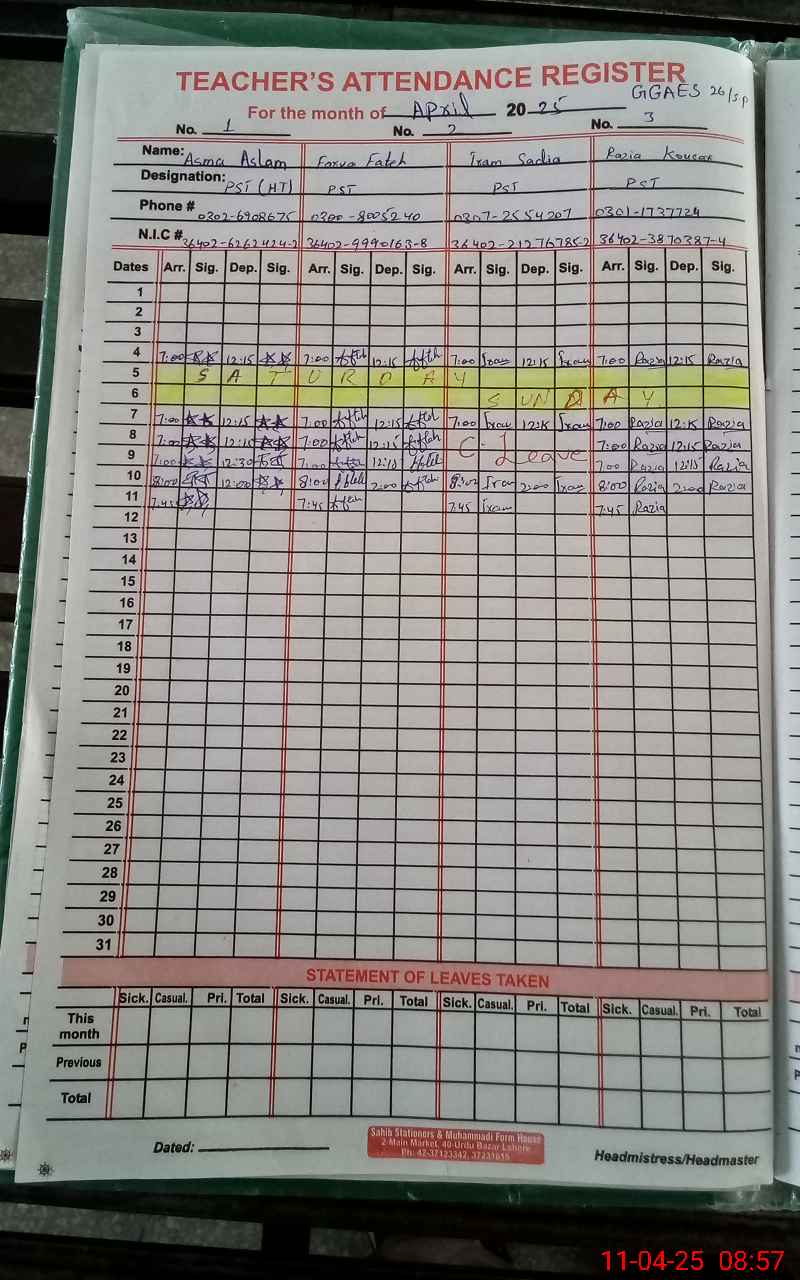 TEACHER'S ATTENDANCE REGISTER
GGAES 26/S.P
For the month of April 20 25
No. 1 No. 2 No. 3
Name: Asma Aslam Farva Fateh Iram Sadia Razia Kousar
Designation: PST (HT) PST PST PST
Phone # 0302-6908675 0300-8005240 0307-2554207 0301-1737724
N.I.C # 36402-6262424-2 36402-9990163-8 36402-21276785-2 36402-3870387-4
Dates Arr. Sig. Dep. Sig. Arr. Sig. Dep. Sig. Arr. Sig. Dep. Sig. Arr. Sig. Dep. Sig.
1
2
3
4 7:00 12:15 7:00 12:15 7:00 Iram 12:15 Iram 7:00 Razia 12:15 Razia
5 SATURDAY
6 SUNDAY
7 7:00 12:15 7:00 12:15 7:00 Iram 12:15 Iram 7:00 Razia 12:15 Razia
8 7:00 12:15 7:00 12:15 C. Leave 7:00 Razia 12:15 Razia
9 7:00 12:30 7:00 12:15 7:00 Razia 12:15 Razia
10 8:00 12:00 8:00 2:00 8:00 Iram 2:00 Iram 8:00 Razia 2:00 Razia
11 7:45 7:45 7:45 Iram 7:45 Razia
12
13
14
15
16
17
18
19
20
21
22
23
24
25
26
27
28
29
30
31
STATEMENT OF LEAVES TAKEN
Sick. Casual. Pri. Total Sick. Casual. Pri. Total Sick. Casual. Pri. Total Sick. Casual. Pri. Total
This month
Previous
Total
Dated:
Sahib Stationors & Muhammadi Form House
2-Main Market, 40-Urdu Bazar Lahore
Ph: 42-37123342, 37231615
Headmistress/Headmaster
11-04-25 08:57